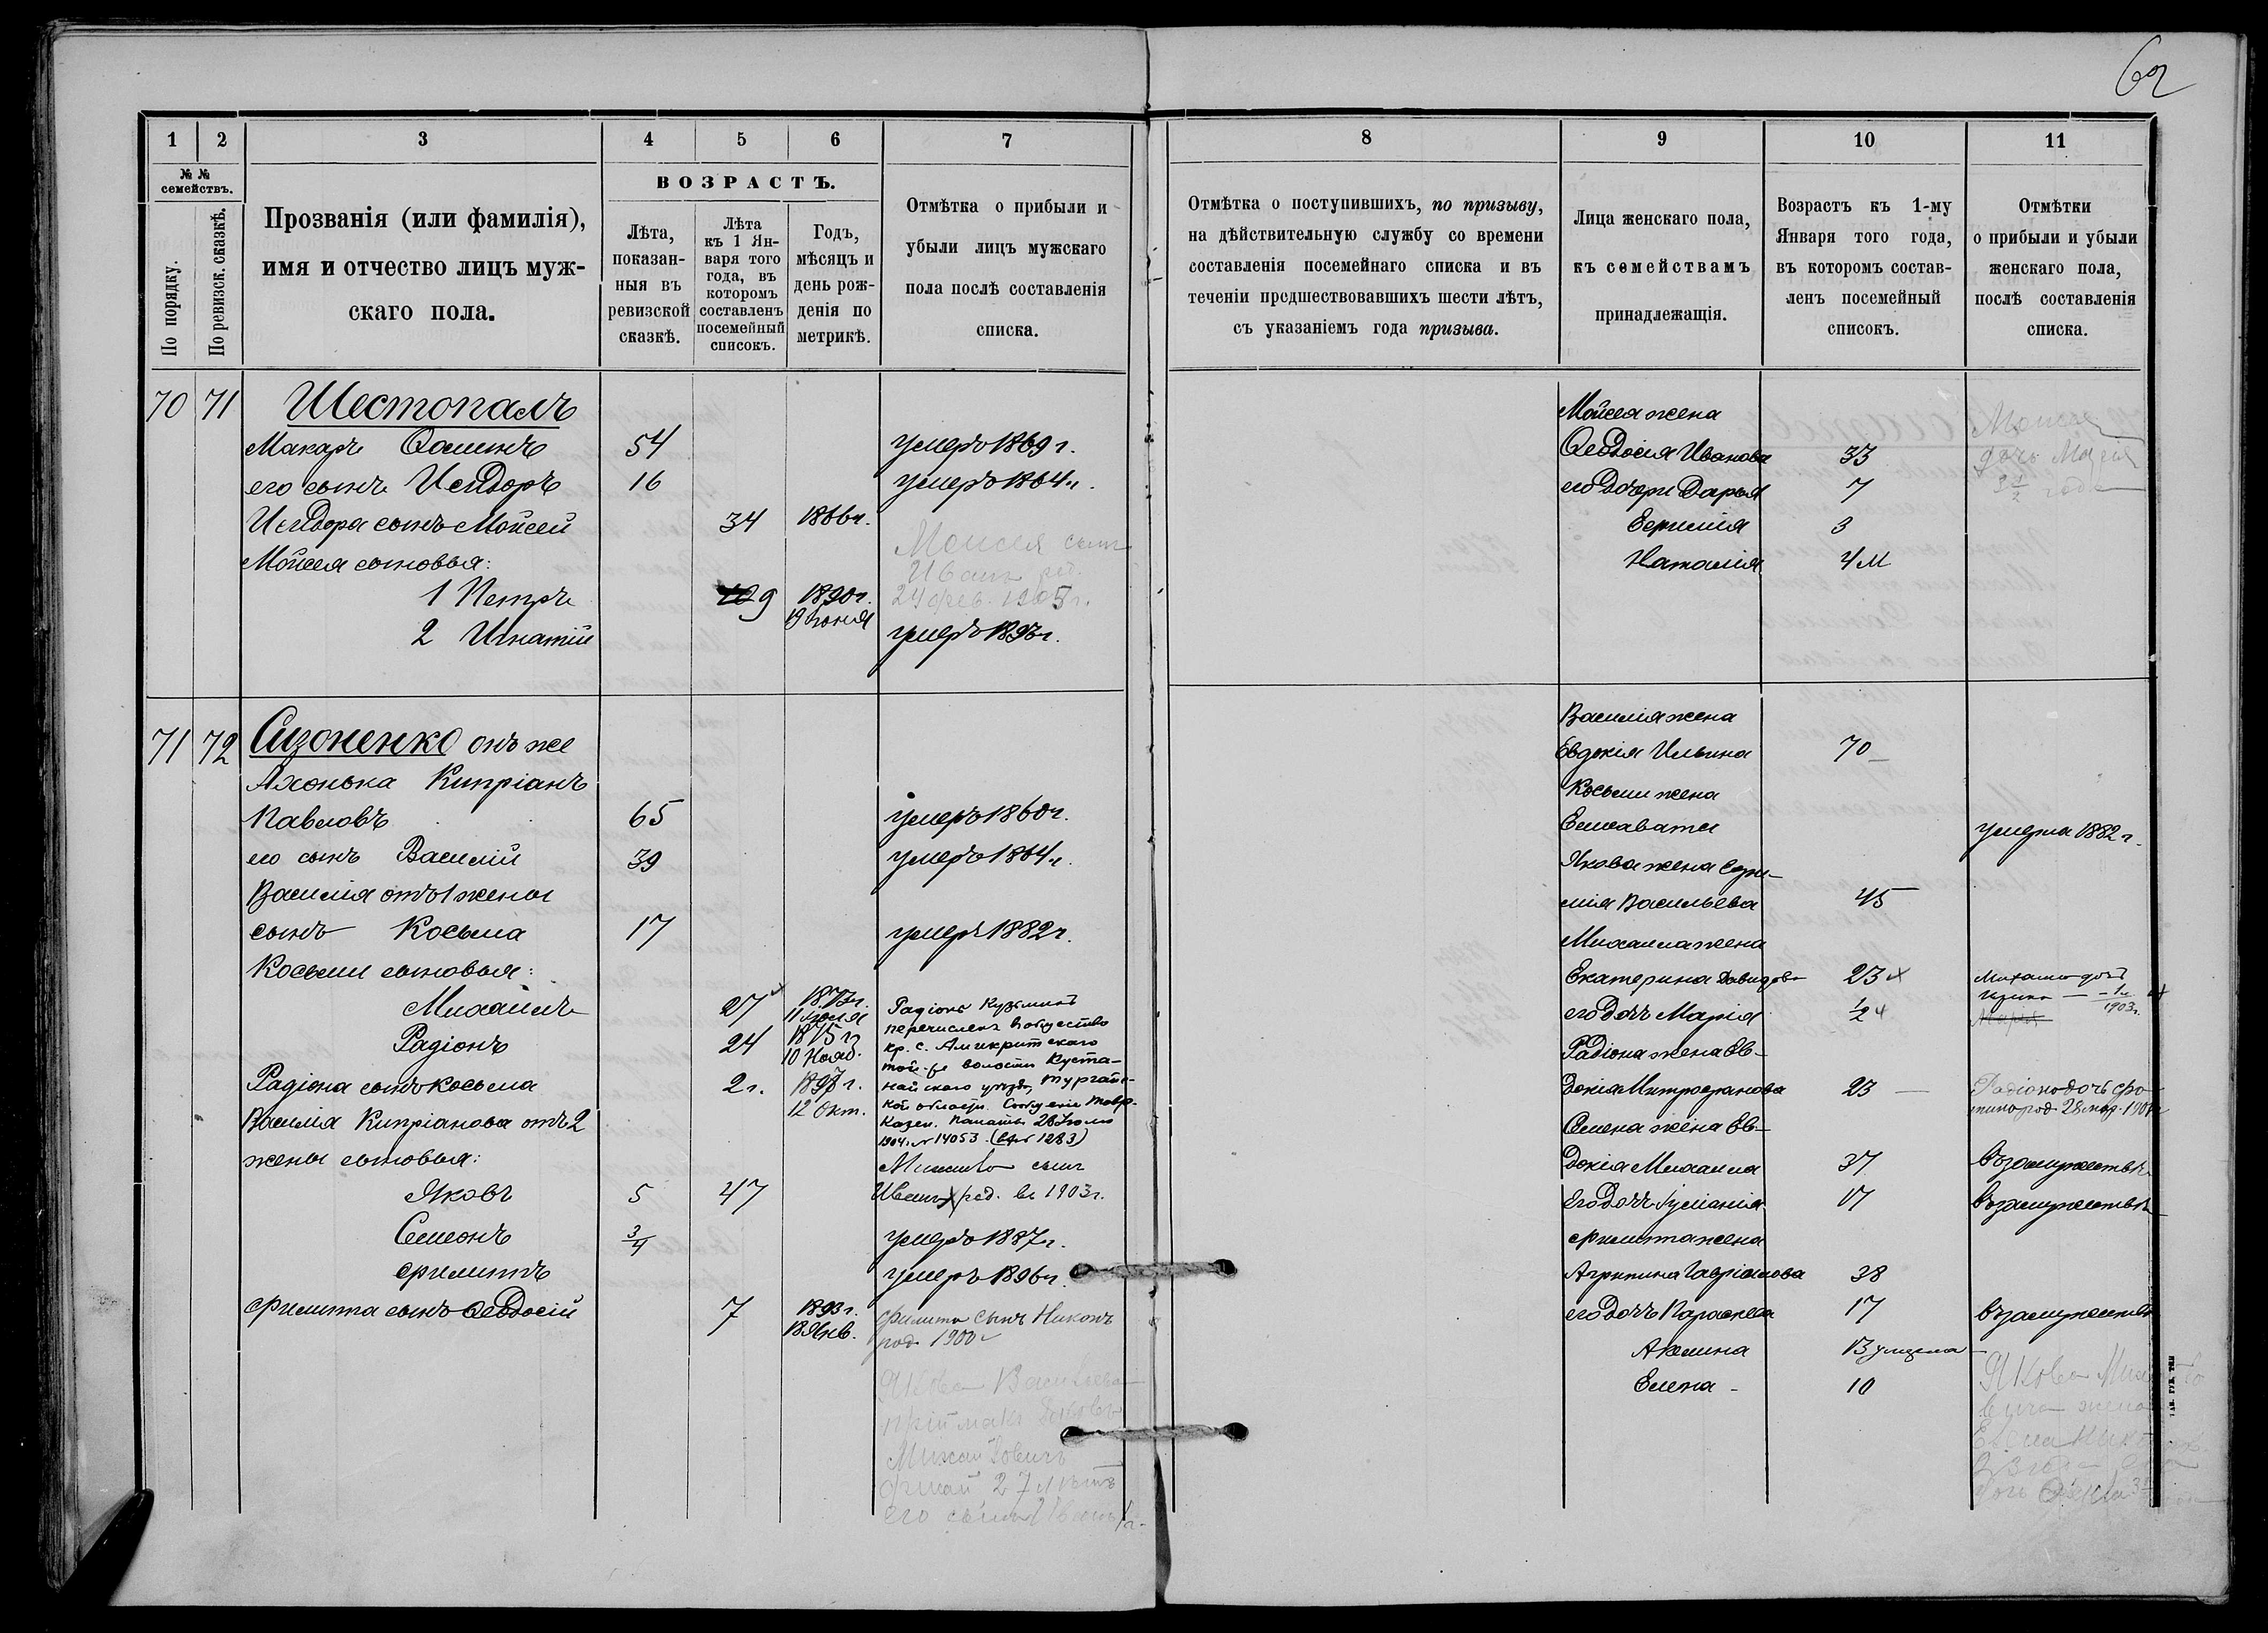 62
1
2
3
4
5
6
7
8
9
10
11
№ №
семействъ.
По порядку.
По ревизск. сказкѣ.
Прозванія (или фамилія),
имя и отчество лицъ муж-
скаго пола.
ВОЗРАСТЪ.
Лѣта,
показан-
ныя въ
ревизской
сказкѣ.
Лѣта
къ 1 Ян-
варя того
года, въ
которомъ
составленъ
посемейный
списокъ.
Годъ,
мѣсяцъ и
день рож-
денія по
метрикѣ.
Отмѣтка о прибыли и
убыли лицъ мужскаго
пола послѣ составленія
списка.
Отмѣтка о поступившихъ, по призыву,
на дѣйствительную службу со времени
составленія посемейнаго списка и въ
теченіи предшествовавшихъ шести лѣтъ,
съ указаніемъ года призыва.
Лица женскаго пола,
къ семействамъ
принадлежащія.
Возрастъ къ 1-му
Января того года,
въ которомъ состав-
ленъ посемейный
списокъ.
Отмѣтки
о прибыли и убыли
женскаго пола,
послѣ составленія
списка.
70 71 Шестопалъ
Макаръ Ѳоминъ 54 умеръ 1869 г.
его сынъ Исидоръ 16 умеръ 1864 г.
Исидора сынъ Мойсей 34 1866 г.
Мойсея сыновья:
Моисея сынъ
Иванъ род.
24 фев. 1905 г.
1 Петръ 9 1890 г.
19 Іюня
2 Игнатій умеръ 1893 г.
Мойсея жена
Ѳеодосія Иванова 33
его дочери Дарья 7
Евфимія 3
Наталія 4 м
Моисея
дочь Марія
3 1/2 года
71 72 Сизоненко онъ же
Яхонька Кипріанъ
Павловъ 65 умеръ 1860 г.
его сынъ Василій 39 умеръ 1864 г.
Василія отъ 1 жены
сынъ Косьма 17 умеръ 1882 г.
Косьмы сыновья:
Михаилъ 27 1873 г.
11 Іюля
Радіонъ 24 1875 г.
10 Нояб.
Радіона сынъ Косьма 2 г. 1897 г.
12 Окт.
Василія Кипріанова отъ 2
жены сыновья:
Яковъ 5 47
Семенъ 3/4 умеръ 1887 г.
Филиппъ умеръ 1896 г.
Филиппа сынъ Ѳеодосій 7 1893 г.
18 Янв.
Радіонъ Кузьминъ
перечисленъ в общество
кр. с.
волости Куста-
найскаго уѣзда, Тургайс-
кой области. Сообщеніе Тавр.
Казен. Палаты 28 Іюля
1904 г. № 14053 (вх № 1283)
сынъ
Иванъ род. в 1903 г.
Филиппа сынъ Никонъ
род. 1900 г
Якова Васильева
пріймакъ Яковъ
Михайловичъ
27 лѣтъ
его сынъ Иванъ 1 г.
Василія жена
Евдокія Ильина 70
Косьмы жена
Елисавета умерла 1882 г.
Якова жена Евфи-
мія Васильева 45
Михаила жена
Екатерина Давидова 23
его дочь Марія 1/2
Михаила дочь
Ирина — 1 г.
1903 г.
Радіона жена Ев-
докія Митрофанова 23
Радіона дочь Фо-
тина род. 28 мар. 190
Семена жена Ев-
докія Михаила 37 въ замужествѣ
его дочь Гуманія 17 въ замужествѣ
Филиппа жена
Агрипина Гавріилова 38
его дочь Параскева 17 въ замужествѣ
Акилина 13 умерла
Елена 10
Якова Михайло
вича жена
Елена